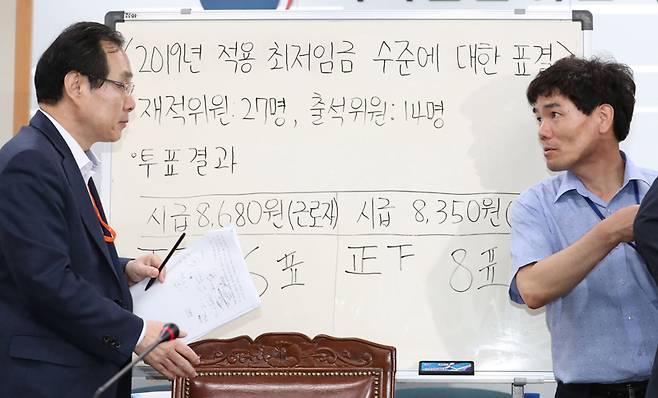 <2019년 적용 최저임금 수준에 대한 표결>
재적위원: 27명, 출석위원: 14명
•투표결과
시급 8,680원(근로자) 시급 8,350원(
6표 正下 8표